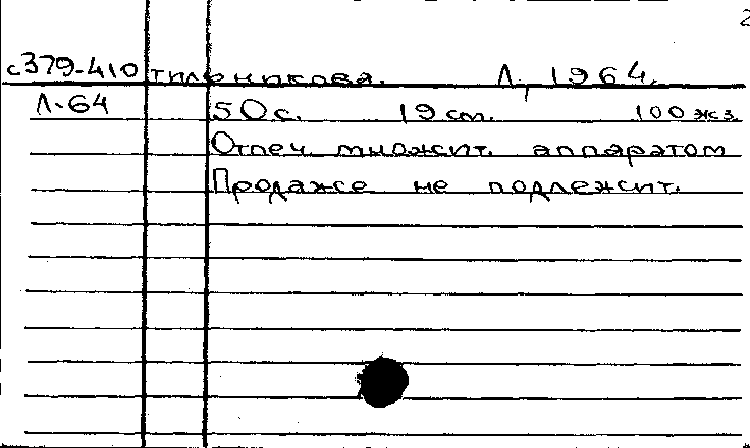 2
с379-410 тиленикова. Л., 1964.
Л-64 50с. 19 см. 100 экз
Отпеч множит. аппаратом
Продаже не подлежит.